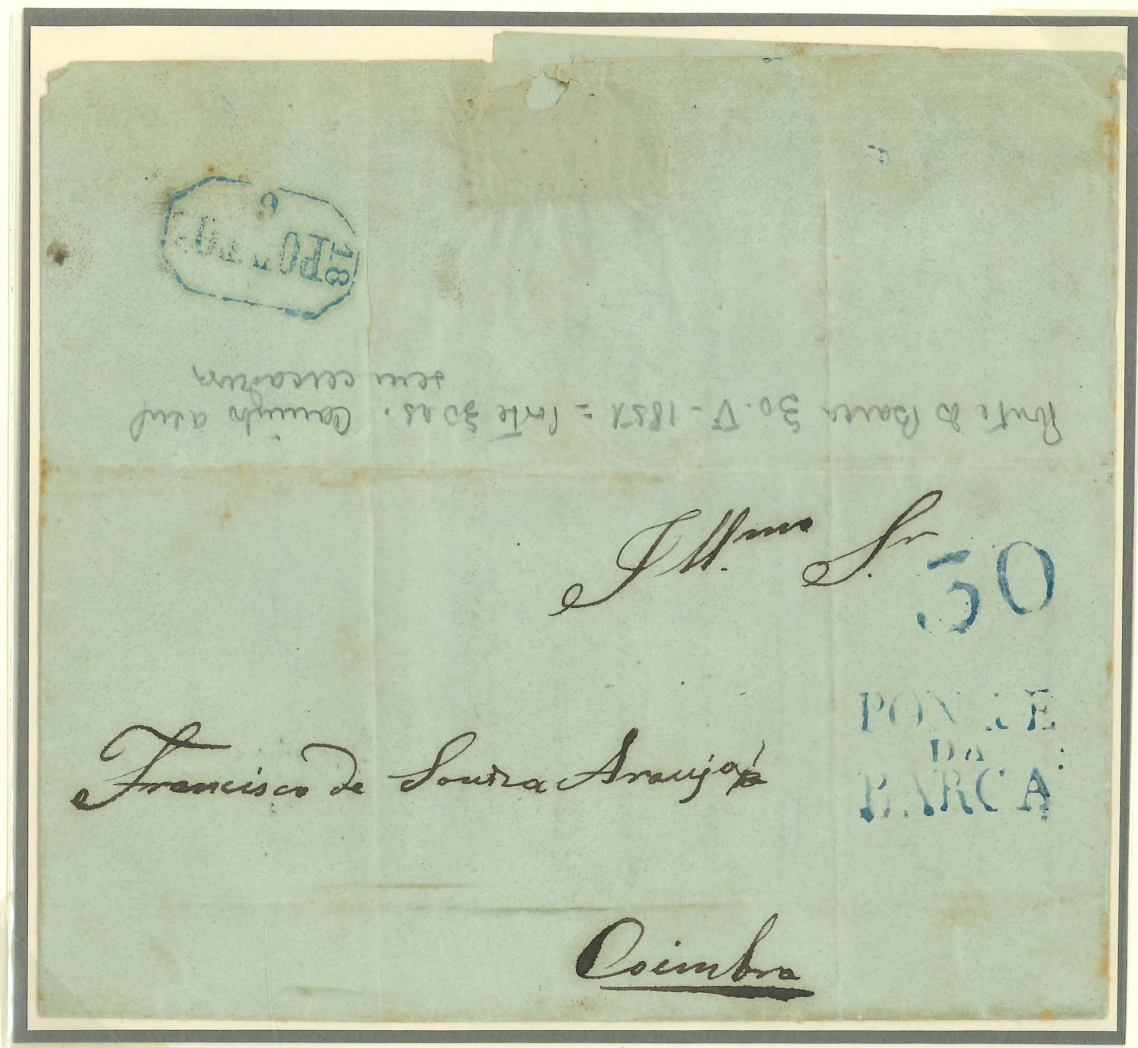 6
PORTO
18
Ponte da Barca 30-V-1851 = Porte 30 rs. Carimbo azul
sem cercadura
Ill.mo Sr.
30
PONTE
DA
BARCA
Francisco de Souza Araujo
Coimbra